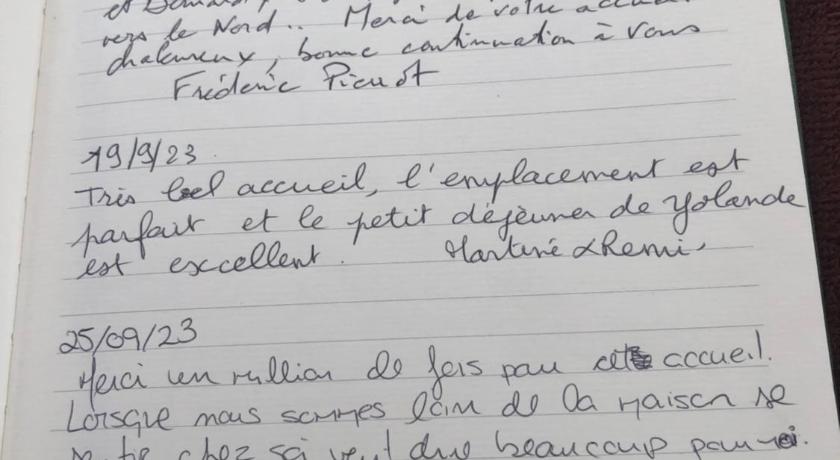 et
vers le Nord.. Merci de votre accueil
chaleureux, bonne continuation à vous
Frédéric Picust
19/9/23
Très bel accueil, l'emplacement est
parfait et le petit déjèuner de Yolande
est excellent. Martine & Remi.
25/09/23
Merci un million de fois pour cet accueil.
Lorsque nous sommes loin de la maison se
sentir chez soi veut dire beaucoup pour moi.